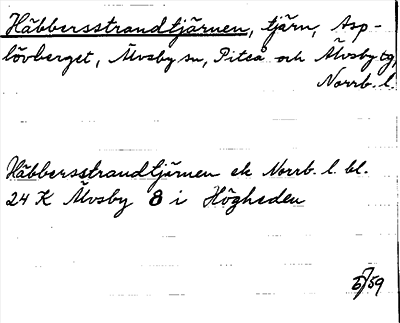 Häbbersstrandtjärnen, tjärn, Asp-
lövberget, Älvsby sn, Piteå och Älvsby tg,
Norrb. l.
Häbbersstrandtjärnen ek Norrb. l. bl.
24 K Älvsby 8 i Högheden
59